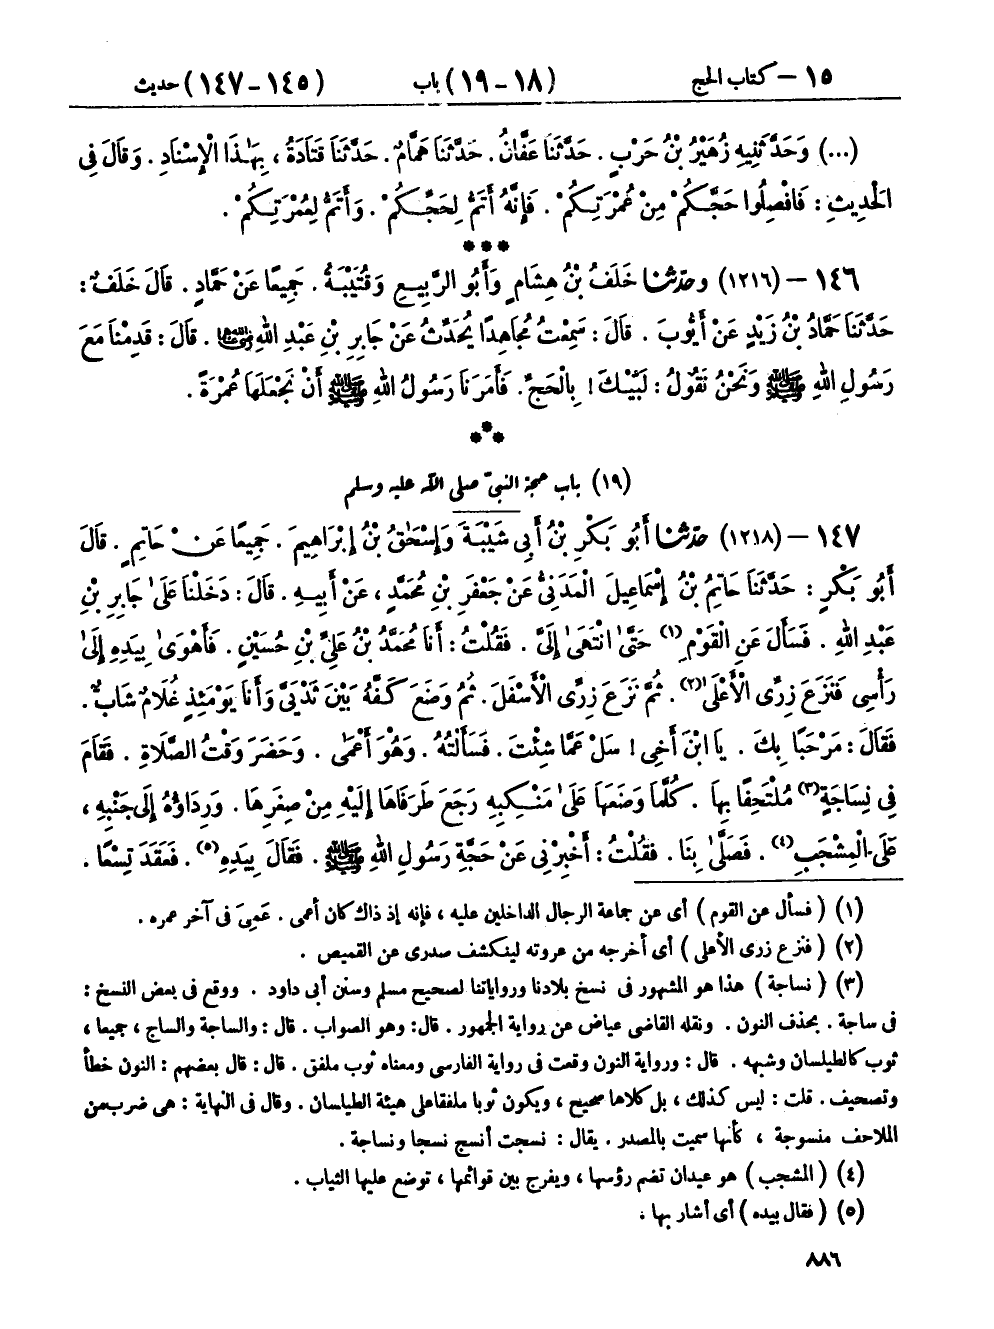 ١٥ – كتاب الحج (١٨ – ١٩) باب (١٤٥ – ١٤٧) حديث
(...) وَحَدَّثَنِيهِ زُهَيْرُ بْنُ حَرْبٍ . حَدَّثَنَا عَفَّانُ . حَدَّثَنَا هَمَّامٌ . حَدَّثَنَا قَتَادَةُ ، بِهَٰذَا الْإِسْنَادِ . وَقَالَ فِى
الْحَدِيثِ : فَافْصِلُوا حَجَّكُمْ مِنْ عُمْرَتِكُمْ . فَإِنَّهُ أَتَمُّ لِحَجِّكُمْ . وَأَتَمُّ لِعُمْرَتِكُمْ .
***
١٤٦ – (١٢١٦) وحدّثنا خَلَفُ بْنُ هِشَامٍ وَأَبُو الرَّبِيعِ وَقُتَيْبَةُ . جَمِيعًا عَنْ حَمَّادٍ . قَالَ خَلَفٌ :
حَدَّثَنَا حَمَّادُ بْنُ زَيْدٍ عَنْ أَيُّوبَ . قَالَ : سَمِعْتُ مُجَاهِدًا يُحَدِّثُ عَنْ جَابِرِ بْنِ عَبْدِ اللهِ رضي الله عنهما . قَالَ : قَدِمْنَا مَعَ
رَسُولِ اللهِ ﷺ وَنَحْنُ نَقُولُ : لَبَّيْكَ ! بِالْحَجِّ . فَأَمَرَنَا رَسُولُ اللهِ ﷺ أَنْ نَجْعَلَهَا عُمْرَةً .
***
(١٩) باب حجة النبىّ صلى الله عليه وسلم
١٤٧ – (١٢١٨) حدّثنا أَبُو بَكْرِ بْنُ أَبِى شَيْبَةَ وَإِسْحَٰقُ بْنُ إِبْرَاهِيمَ . جَمِيعًا عَنْ حَاتِمٍ . قَالَ
أَبُو بَكْرٍ : حَدَّثَنَا حَاتِمُ بْنُ إِسْمَاعِيلَ الْمَدَنِىُّ عَنْ جَعْفَرِ بْنِ مُحَمَّدٍ ، عَنْ أَبِيهِ . قَالَ : دَخَلْنَا عَلَىٰ جَابِرِ بْنِ
عَبْدِ اللهِ . فَسَأَلَ عَنِ الْقَوْمِ(١) حَتَّىٰ انْتَهَىٰ إِلَىَّ . فَقُلْتُ : أَنَا مُحَمَّدُ بْنُ عَلِىِّ بْنِ حُسَيْنٍ . فَأَهْوَىٰ بِيَدِهِ إِلَىٰ
رَأْسِى فَنَزَعَ زِرِّى الْأَعْلَىٰ(٢) . ثُمَّ نَزَعَ زِرِّى الْأَسْفَلَ . ثُمَّ وَضَعَ كَفَّهُ بَيْنَ ثَدْيَىَّ وَأَنَا يَوْمَئِذٍ غُلَامٌ شَابٌّ .
فَقَالَ : مَرْحَبًا بِكَ . يَا ابْنَ أَخِى ! سَلْ عَمَّا شِئْتَ . فَسَأَلْتُهُ . وَهُوَ أَعْمَىٰ . وَحَضَرَ وَقْتُ الصَّلَاةِ . فَقَامَ
فِى نِسَاجَةٍ(٣) مُلْتَحِفًا بِهَا . كُلَّمَا وَضَعَهَا عَلَىٰ مَنْكِبِهِ رَجَعَ طَرَفَاهَا إِلَيْهِ مِنْ صِغَرِهَا . وَرِدَاؤُهُ إِلَىٰ جَنْبِهِ ،
عَلَى الْمِشْجَبِ(٤) . فَصَلَّىٰ بِنَا . فَقُلْتُ : أَخْبِرْنِى عَنْ حَجَّةِ رَسُولِ اللهِ ﷺ . فَقَالَ بِيَدِهِ(٥) . فَعَقَدَ تِسْعًا .
(١) ( فسأل عن القوم ) أى عن جماعة الرجال الداخلين عليه ، فإنه إذ ذاك كان أعمى . عَمِىَ فى آخر عمره .
(٢) ( فنزع زرى الأعلى ) أى أخرجه من عروته لينكشف صدرى عن القميص .
(٣) ( نساجة ) هذا هو المشهور فى نسخ بلادنا ورواياتنا لصحيح مسلم وسنن أبى داود . ووقع فى بعض النسخ :
فى ساجة . بحذف النون . ونقله القاضى عياض عن رواية الجمهور . قال : وهو الصواب . قال : والساجة والساج ، جميعا ،
ثوب كالطيلسان وشبهه . قال : ورواية النون وقعت فى رواية الفارسى ومعناه ثوب ملفق . قال : قال بعضهم : النون خطأ
وتصحيف . قلت : ليس كذلك ، بل كلاها صحيح ، ويكون ثوبا ملفقا على هيئة الطيلسان . وقال فى النهاية : هى ضرب من
الملاحف منسوجة ، كأنها سميت بالمصدر . يقال : نسجت أنسج نسجا ونساجة .
(٤) ( المشجب ) هو عيدان تضم رؤسها ، ويفرج بين قوائمها ، توضع عليها الثياب .
(٥) ( فقال بيده ) أى أشار بها .
٨٨٦